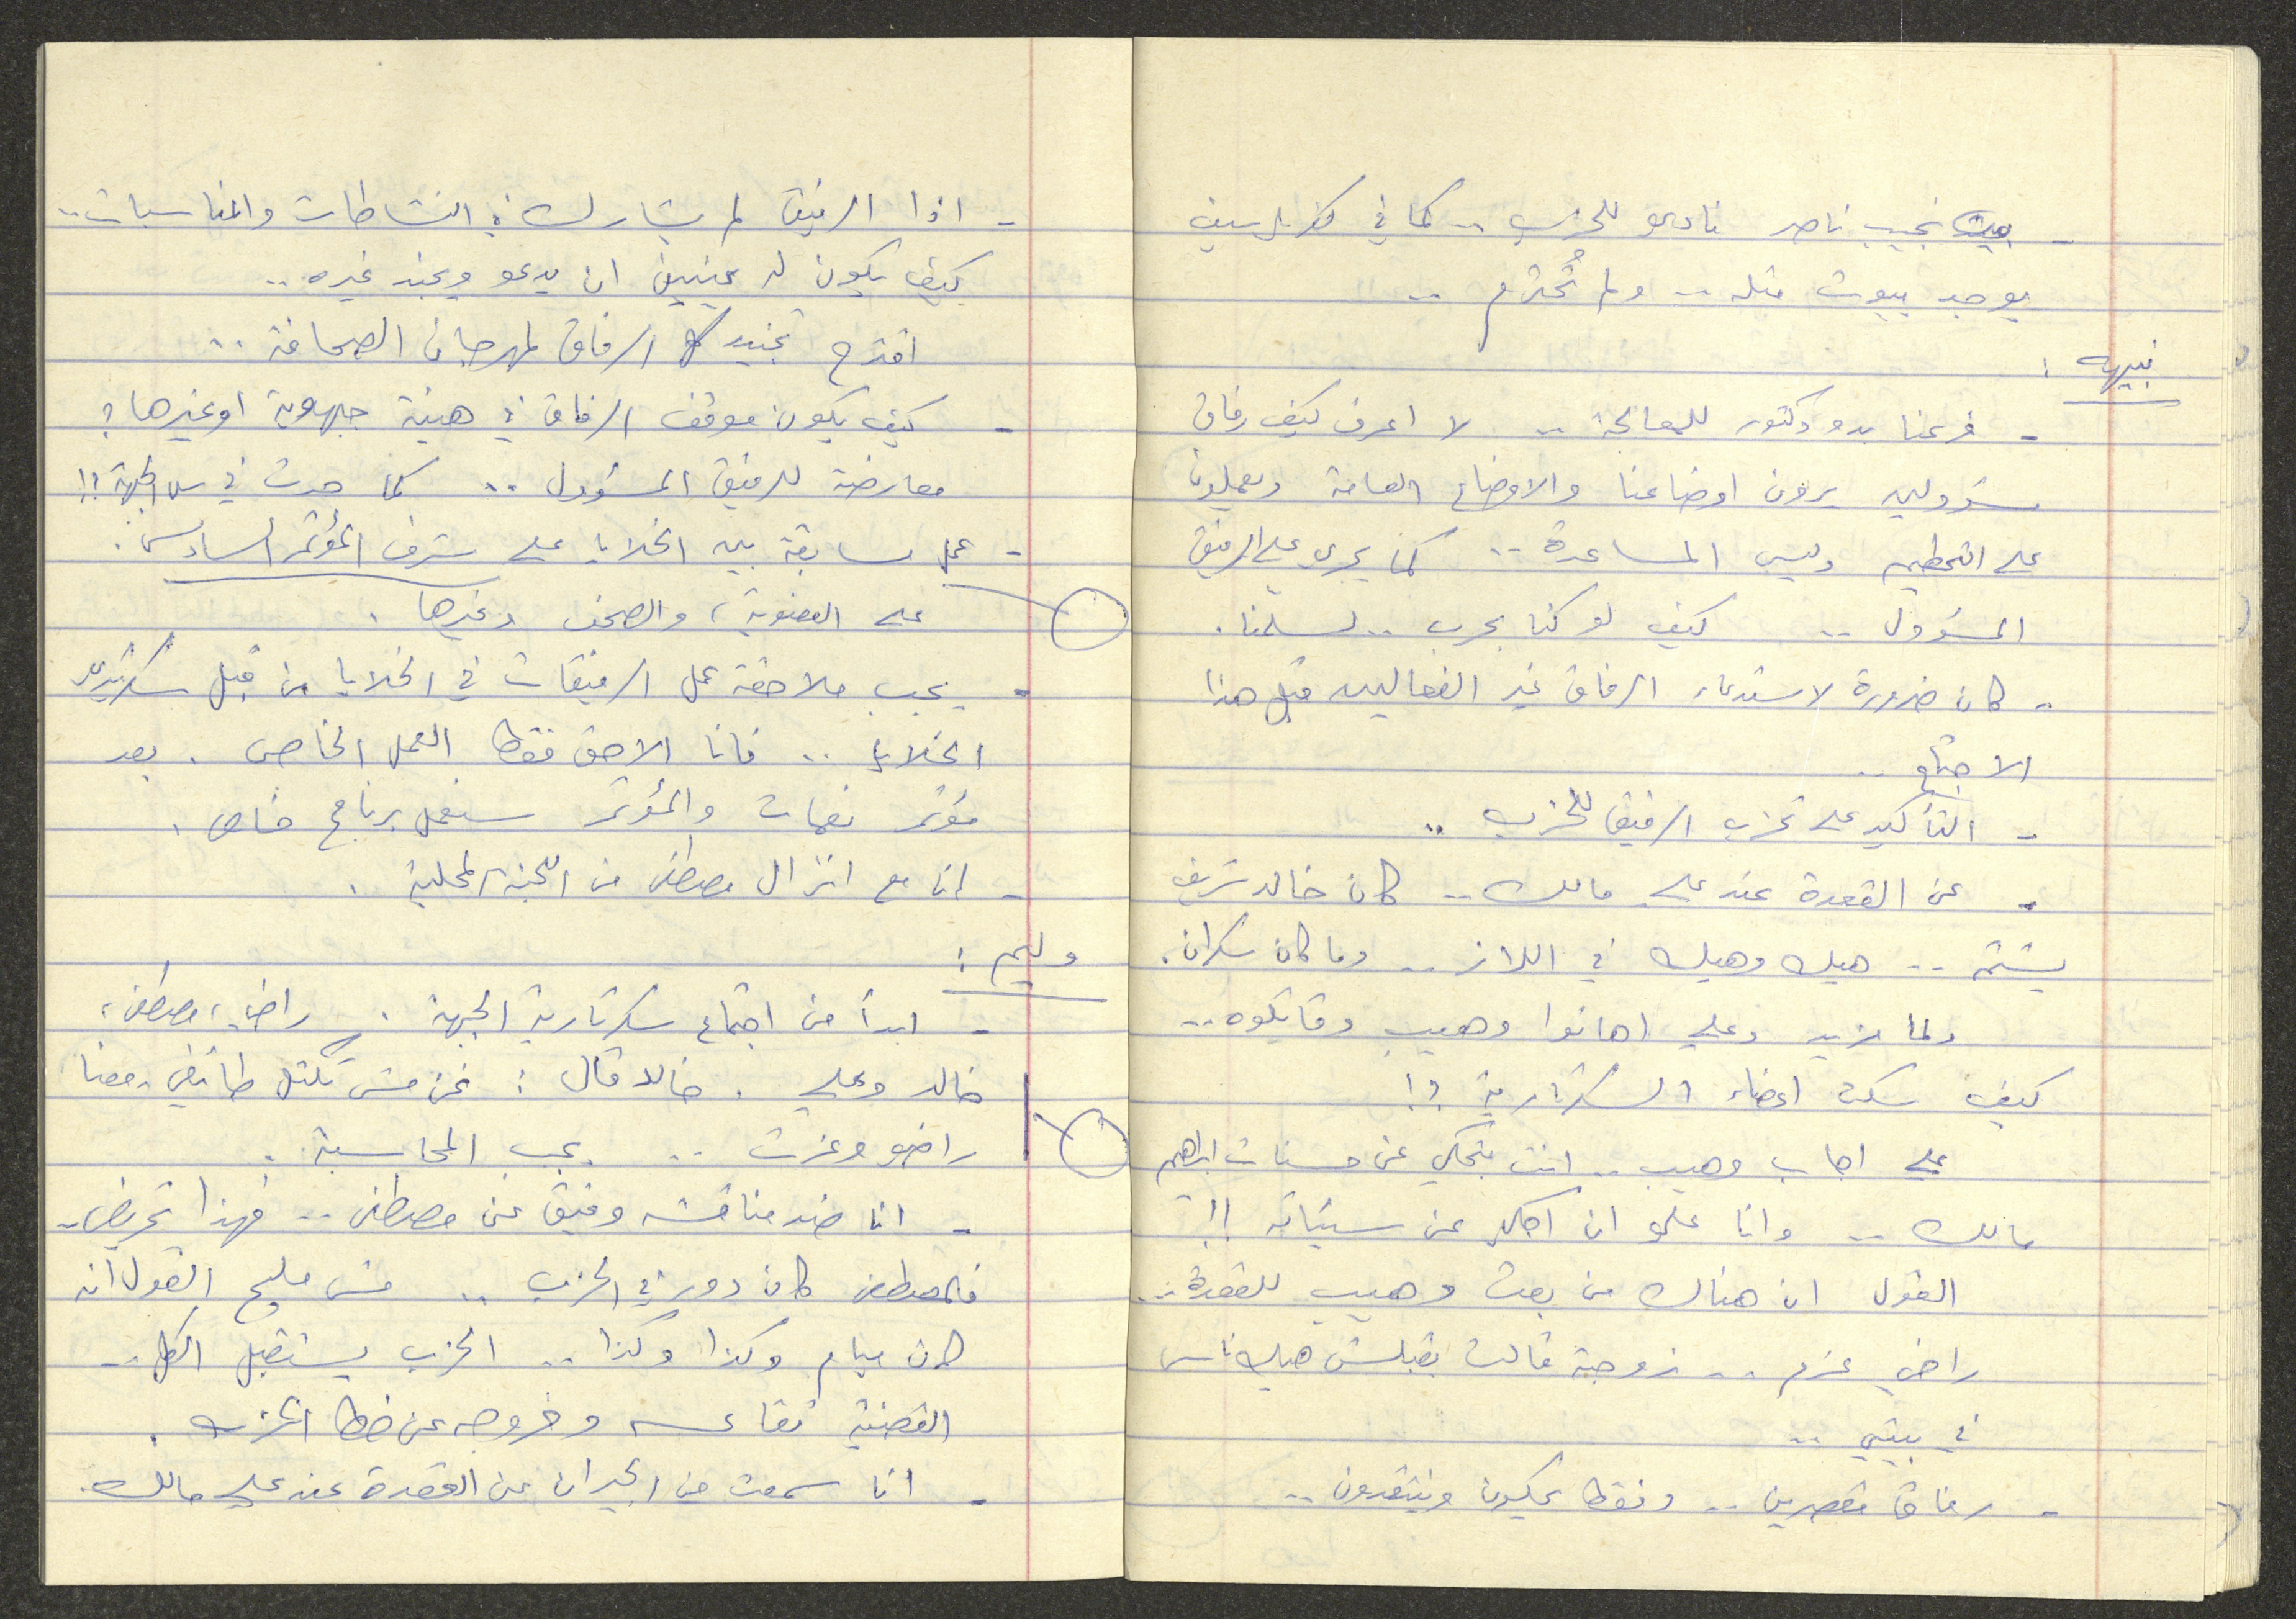 - بيت نجيب ناصر نادي للحزب .. كما في كفر ياسيف
يوجد بيوت مثله .. ولم تُحترم ..
نبيه :
- فرعنا بدو دكتور للمعالجة .. لا اعرف كيف رفاق
مسؤولين يرون اوضاعنا والاوضاع العامة ويعملون
على التحطيم وليس المساعدة .. كما يجري على الرفيق
المسؤول .. كيف لو كنا بحرب .. لسلمنا .
- كان ضرورة لاستدعاء الرفاق غير الفعالين قبل هذا
الاجتماع ..
- التأكيد على تحزب الرفيق للحزب ..
- عن القعدة عند علي مالك .. كان خالد شريف
يشتم .. هيك وهيك في اللاز .. وما كان سكران .
ولما يزيد وعلي اهانوا وهيب وقاتلوه ..
كيف سكت اعضاء السكرتارية ؟!
علي اجاب وهيب .. انت بتحكي عن حسنات ابراهيم
مالك .. وانا علي ان احكي عن سيئاته !!
القول ان هناك من بعث وهيب للقعدة ..
راضي عزم .. زوجة قالت بقبلش هيك ناس
في بيتي ..
- رفاق مقصرين .. وفقط يحكون وينتقدون ..
- اذا الرفيق لم يشارك في النشاطات والمناسبات ..
كيف يكون له عينين ان يدعو ويجند غيره ..
اقترح تجنيد كل الرفاق لمهرجان الصحافة ..
- كيف يكون موقف الرفاق في هيئة جبهوية او غيرها ؟
معارضة للرفيق المسؤول .. كما حدث في س. الجبهة ؟!
- عمل مسابقة بين الخلايا على شرف المؤتمر السادس .
على العضوية ، والصحف وغيرها .
- يجب ملاحقة عمل الرفيقات في الخلايا من قبل سكرتيري
الخلايا .. فانا الاحق فقط العمل الخاص . بعد
مؤتمر نعمات والمؤتمر سنعمل برنامج خاص .
- انا مع انزال مصطفى من اللجنة المحلية .
وليم :
- ابدأ من اجتماع سكرتارية الجبهة . راضي ، مصطفى ،
خالد وعلي . خالد قال : نحن مش تكتل طائفي ، معنا
راضي وعزت .. يجب المحاسبة .
- انا ضد مناقشة وفيق عن مصطفى .. فهذا تحريض ..
فلمصطفى كان دور في الحزب .. مش مليح القول انه
كان ينام وكذا وكذا .. الحزب يستقبل الكل ..
القضية تقاعسه وخروجه عن خط الحزب .
- انا سمعت من الجيران عن القعدة عند علي مالك .